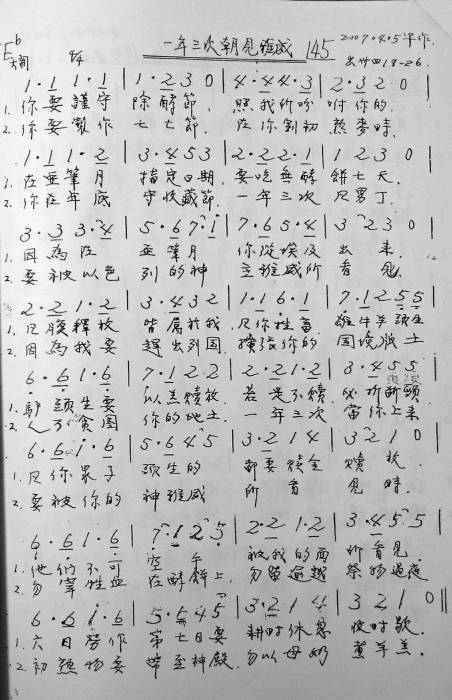 一年三次朝見雅威 145 2007.4.5平作.
E♭大調 4/4 出卅四18-26.
1·1 1·1 | 1·2 3 0 | 4·4 4·3 | 2·3 2 0 |
1. 你要謹守 除酵節. 照我所吩 咐你的.
2. 你要製作 七七節. 在你割初 熟麥時.
1·1 1·2 | 3·4 5 3 | 2·2 2·1 | 1 2 3 0 |
1. 在亞筆月 指定日期. 要吃無酵 餅七天.
2. 你在年底 守收藏節. 一年三次 凡男丁.
3·3 3·4 | 5·6 7·1 | 7·6 5·4 | 3 2 3 0 |
1. 因為在 亞筆月 你從埃及 出來.
2. 要被以色 列的神 主雅威所 看見.
2·2 1·2 | 3·4 3 2 | 1·1 6·1 | 7·1 2 5 5 |
1. 凡胎釋放 皆屬於我. 凡你牲畜 雄牛羊頭生
2. 因為我要 趕出列國. 擴張你的 國境版土
6·6 1·6 | 7·1 2 2 | 2·2 1·2 | 3·4 5 5 |
1. 驢頭生要 以羔贖放 若是不贖. 必折斷頸
2. 人不貪圖 你的地土. 一年三次 當你上來
6·6 1·6 | 5·6 4 5 | 3·2 1 4 | 3 2 1 0 |
1. 凡你眾子 頭生的 都要贖金 贖放.
2. 要被你的 神雅威 所看 見時.
6·6 1·6 | 7·1 2 5 | 2·2 1·2 | 3·4 5 5 |
1. 他們不可 空手 被我的面 所看見
2. 勿宰牲血 在酵餅上. 勿留逾越 祭物過夜
6·6 1·6 | 5·6 4 5 | 3·2 1 4 | 3 2 1 0 ||
1. 六日勞作 第七日要 耕時休息 收時歇.
2. 初熟物要 帶至神殿. 勿以母奶 煮羊羔.